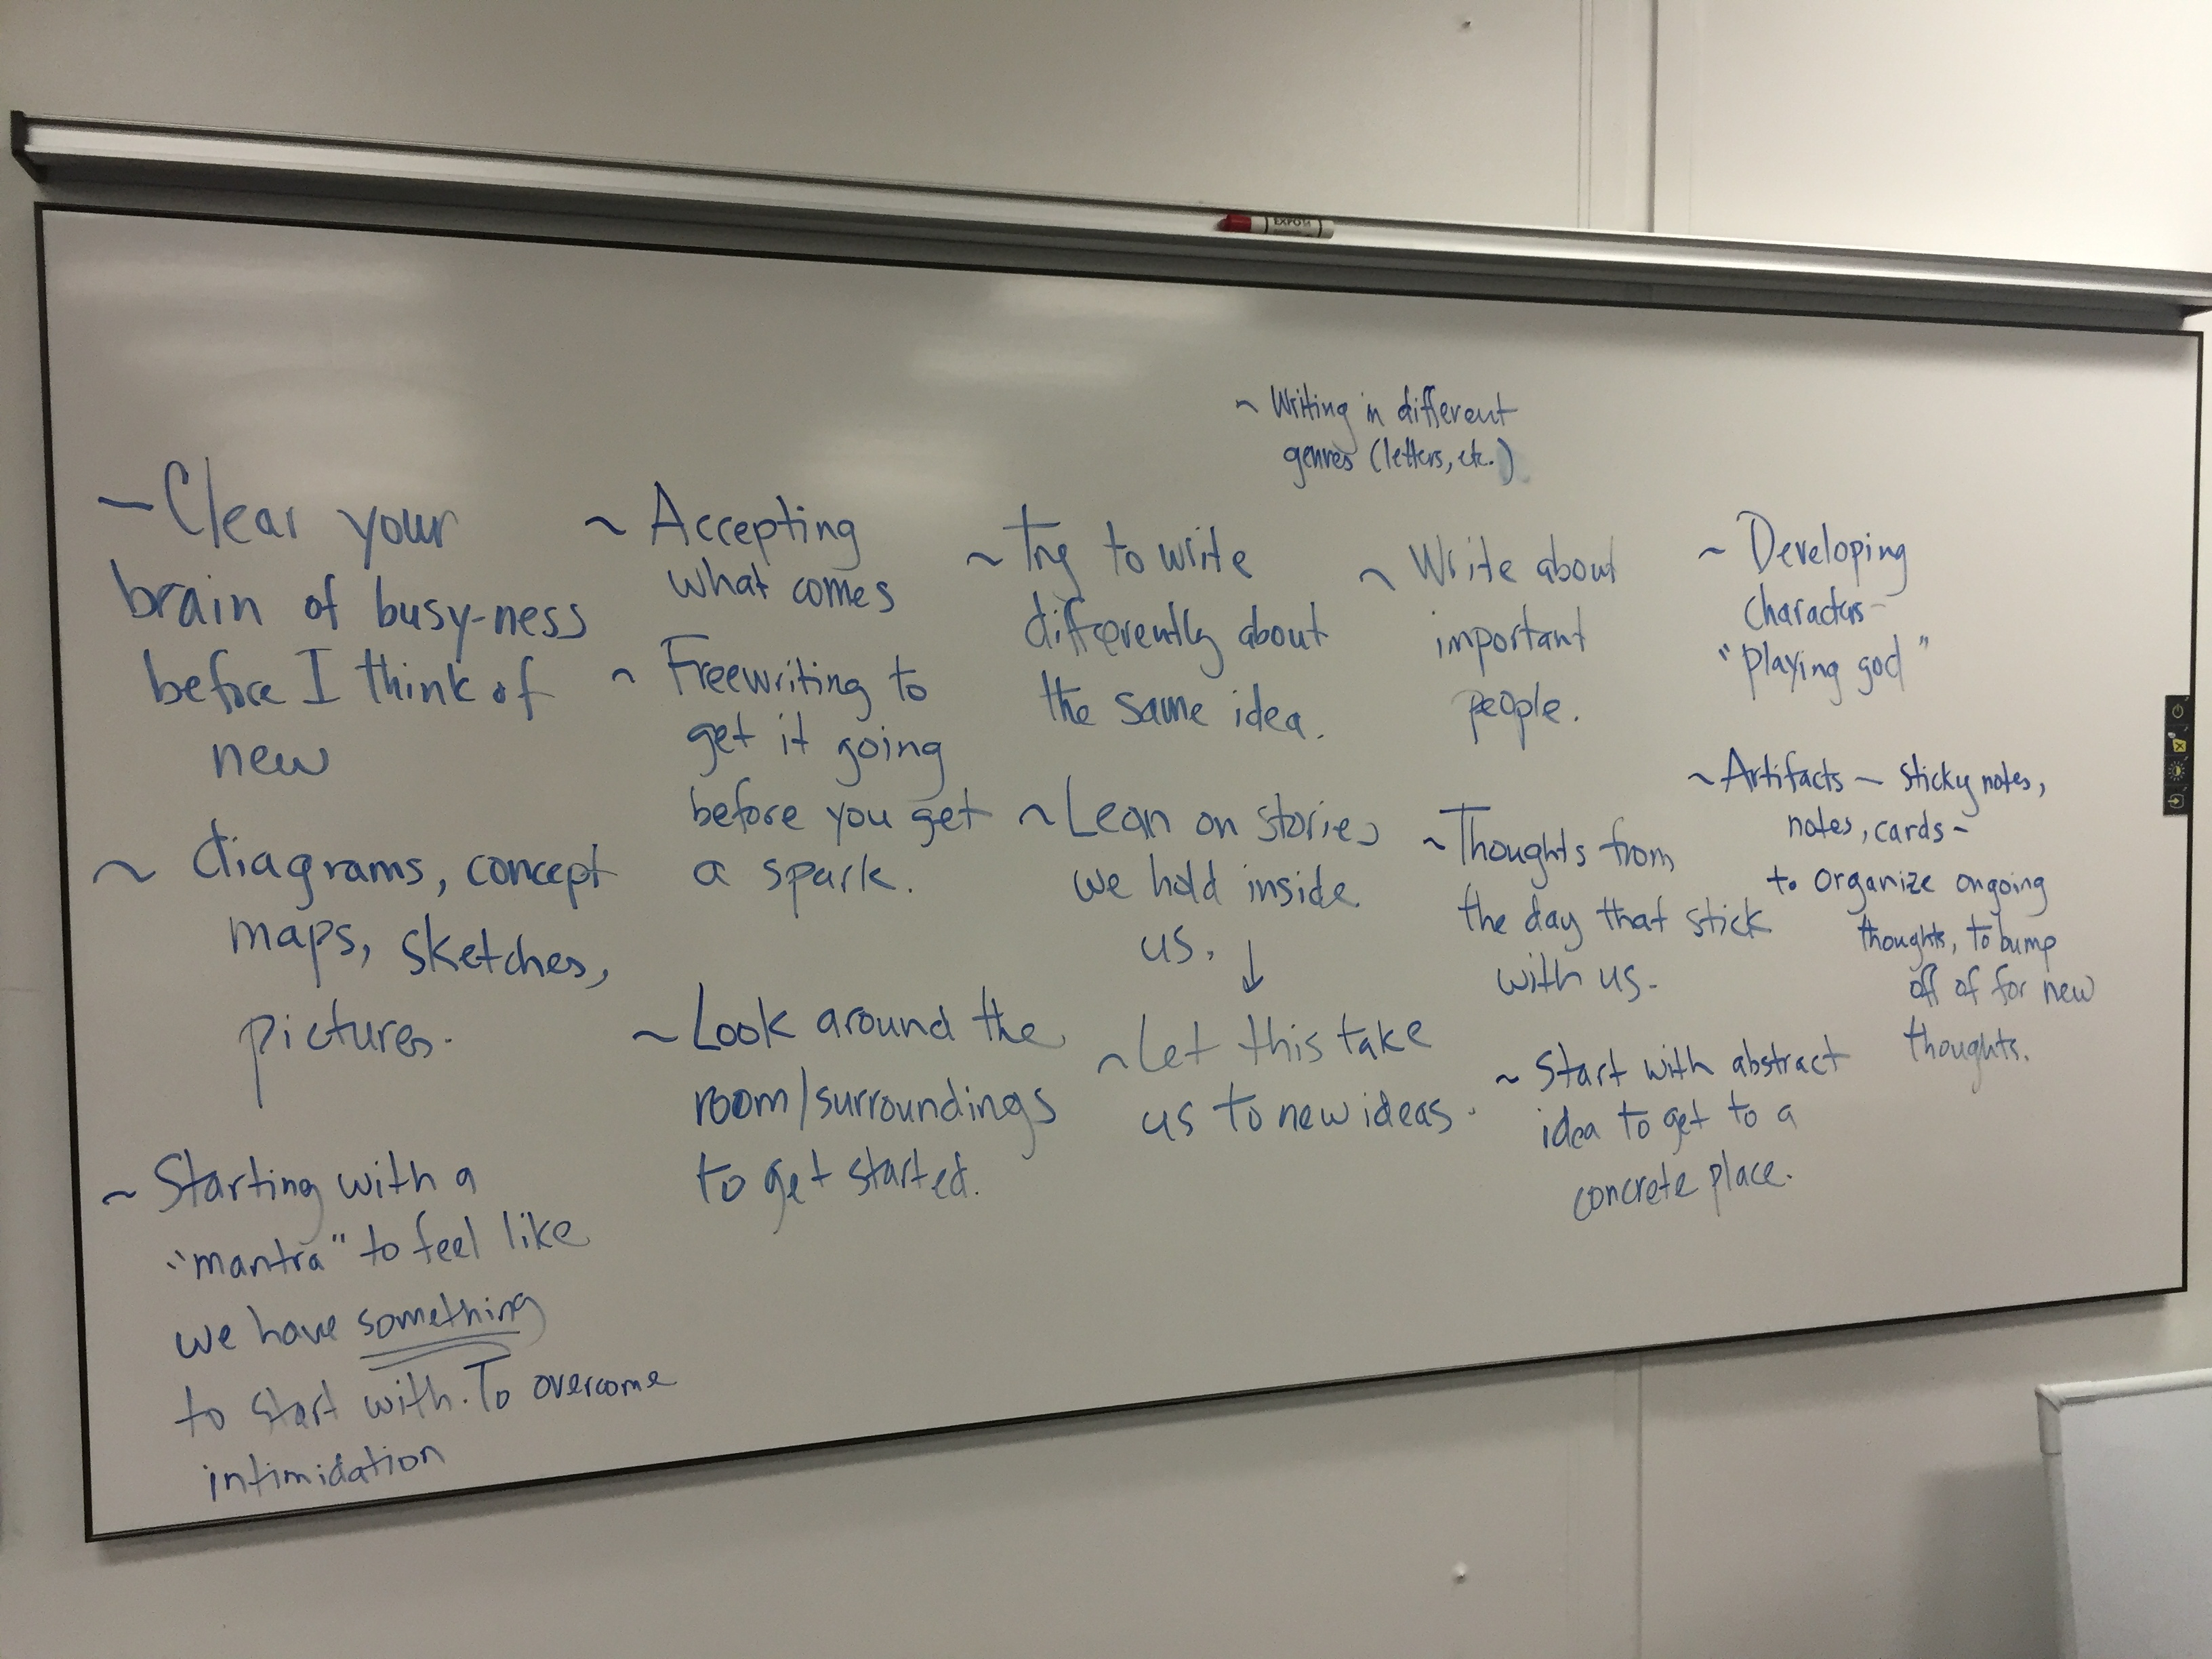 ~ Clear your
brain of busy-ness
before I think of
new
~ diagrams, concept
maps, sketches,
pictures.
~ Starting with a
"mantra" to feel like
we have something
to start with. To overcome
intimidation
~ Accepting
what comes
~ Freewriting to
get it going
before you get
a spark.
~ Look around the
room/surroundings
to get started.
~ Try to write
differently about
the same idea.
~ Lean on stories
we hold inside
us. ↓
~ Let this take
us to new ideas.
~ Writing in different
genres (letters, etc.)
~ Write about
important
people.
~ Thoughts from
the day that stick
with us.
~ Start with abstract
idea to get to a
concrete place.
~ Developing
characters-
"playing god"
~ Artifacts - sticky notes,
notes, cards-
to organize ongoing
thoughts, to bump
off of for new
thoughts.
EXPO